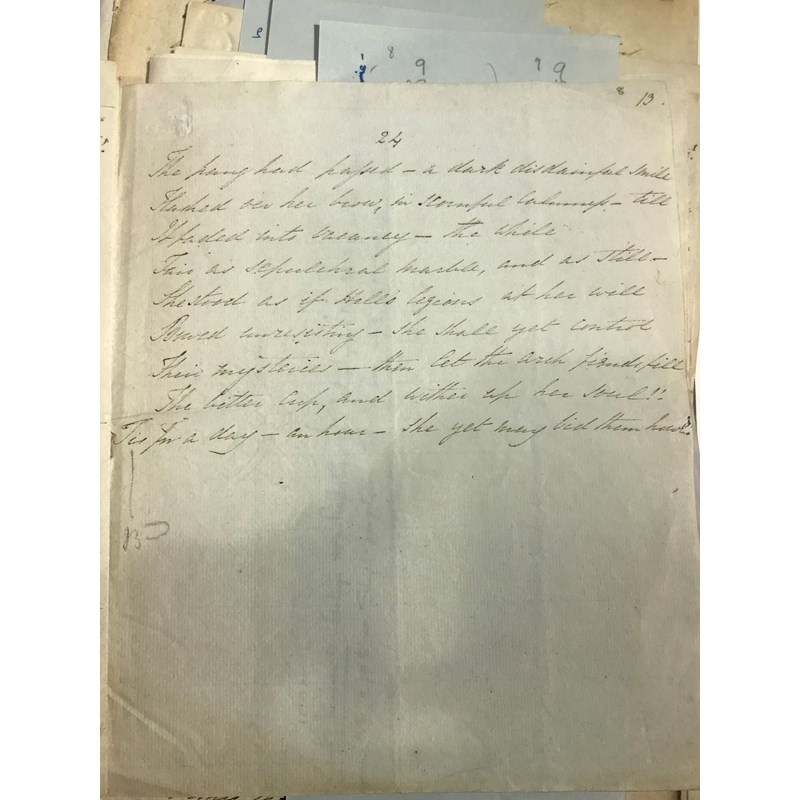 9
8 9
9 9
8 13.
24
The pang had passed – a dark disdainful smile
Flashed oer her brow, in scornful Calmness – till
It faded into vacancy – the while
Fair as sepulchral marble, and as still –
She stood as if Hell's legions at her will
Bowed unresisting – She shall yet control
Their mysteries – then let the arch fiends fill
The bitter Cup, and wither up her soul!!
Tis for a day – an hour – She yet may bid them
B